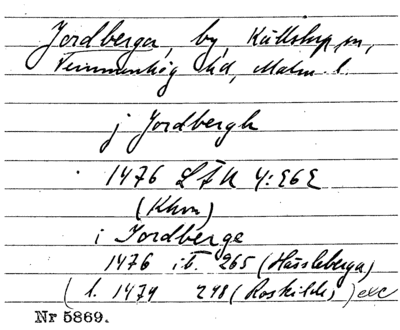 Jordberga, by, Källstorp sn,
Vemmenhög hd, Malm. l.
j Jordbergh
1476 LÅU 4:363
(Khvn)
i Jordberge
1476 ib. 265 (Hassleberga)
(1. 1474 248 (Roskilde) exc
Nr 5869.